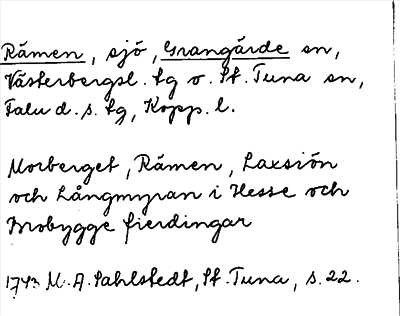 Råmen, sjö, Grangärde sn,
Västerbergsl. tg o. St. Tuna sn,
Falu d. s. tg, Kopp. l.
Morberget, Råmen, Laxsiön
och Långmyran i Hesse och
Brobygge fierdingar
1743 M. A. Sahlstedt, St. Tuna, s. 22.